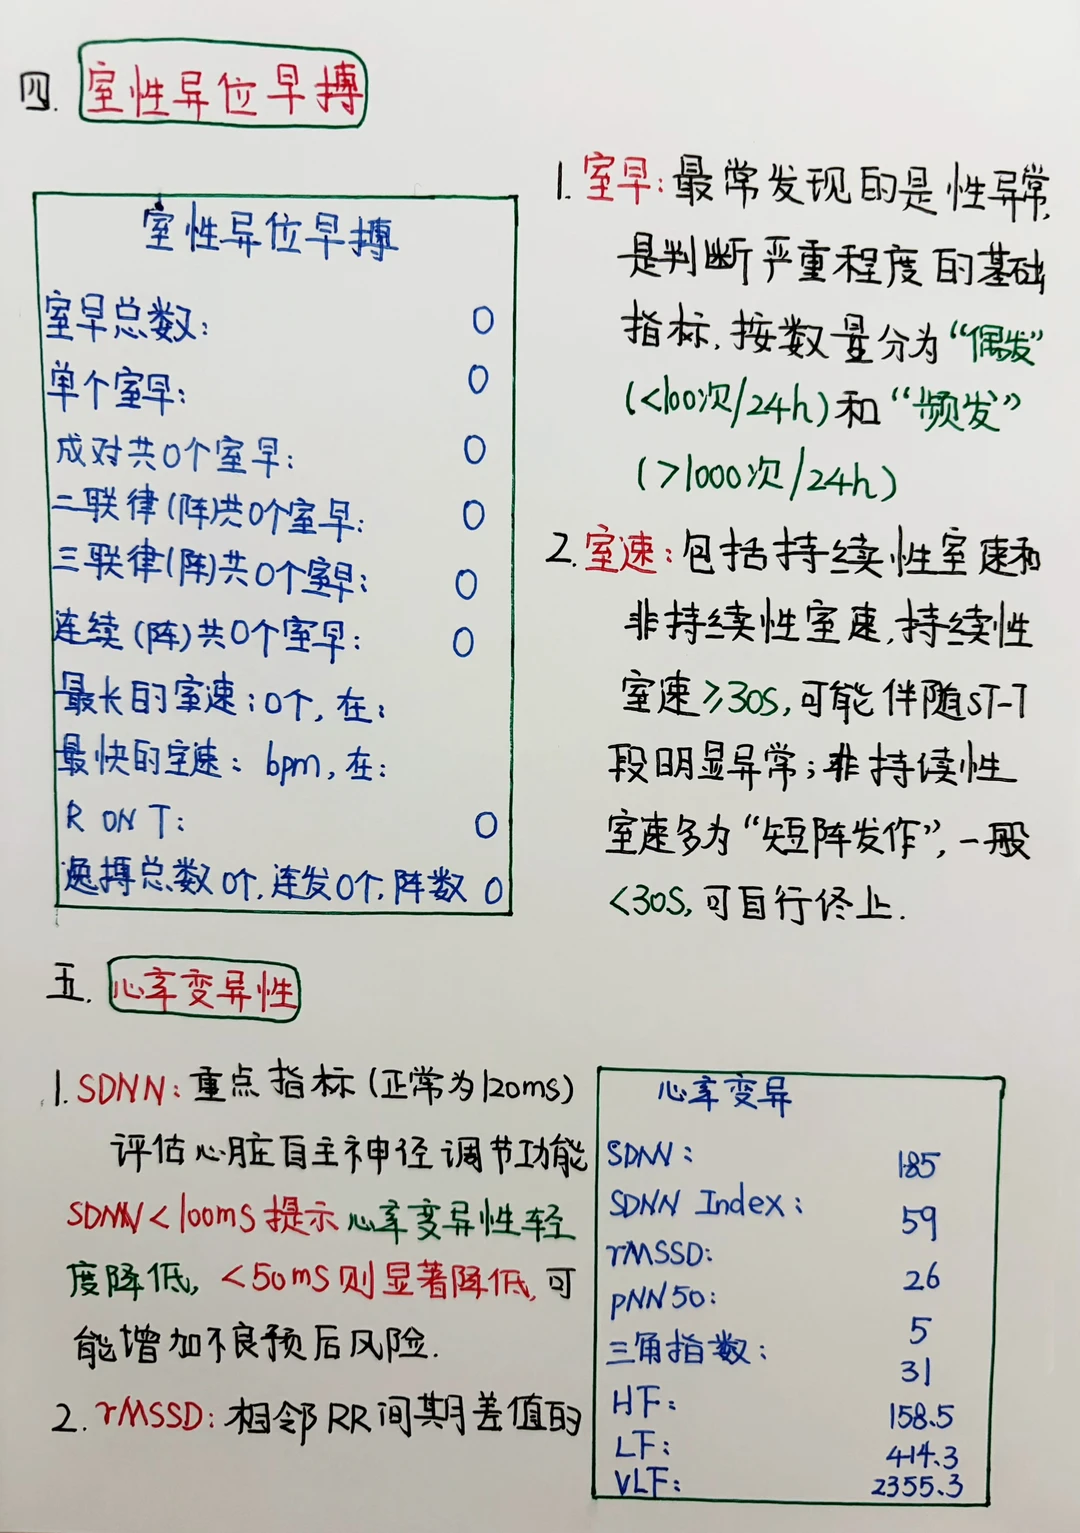 四. 室性异位早搏
室性异位早搏
室早总数: 0
单个室早: 0
成对共0个室早: 0
二联律(阵)共0个室早: 0
三联律(阵)共0个室早: 0
连续(阵)共0个室早: 0
最长的室速:0个,在:
最快的室速: bpm,在:
R ON T: 0
逸搏总数0个,连发0个,阵数 0
1. 室早:最常发现的是性异常,
是判断严重程度的基础
指标,按数量分为“偶发”
(<100次/24h)和“频发”
(>1000次/24h)
2. 室速:包括持续性室速和
非持续性室速,持续性
室速≥30S,可能伴随ST-T
段明显异常;非持续性
室速多为“短阵发作”,一般
<30S,可自行终止.
五. 心率变异性
1. SDNN:重点指标(正常为120ms)
评估心脏自主神经调节功能
SDNN<100ms提示心率变异性轻
度降低,<50ms则显著降低,可
能增加不良预后风险.
2. rMSSD:相邻RR间期差值的
心率变异
SDNN: 185
SDNN Index: 59
rMSSD: 26
pNN50: 5
三角指数: 31
HF: 158.5
LF: 414.3
VLF: 2355.3